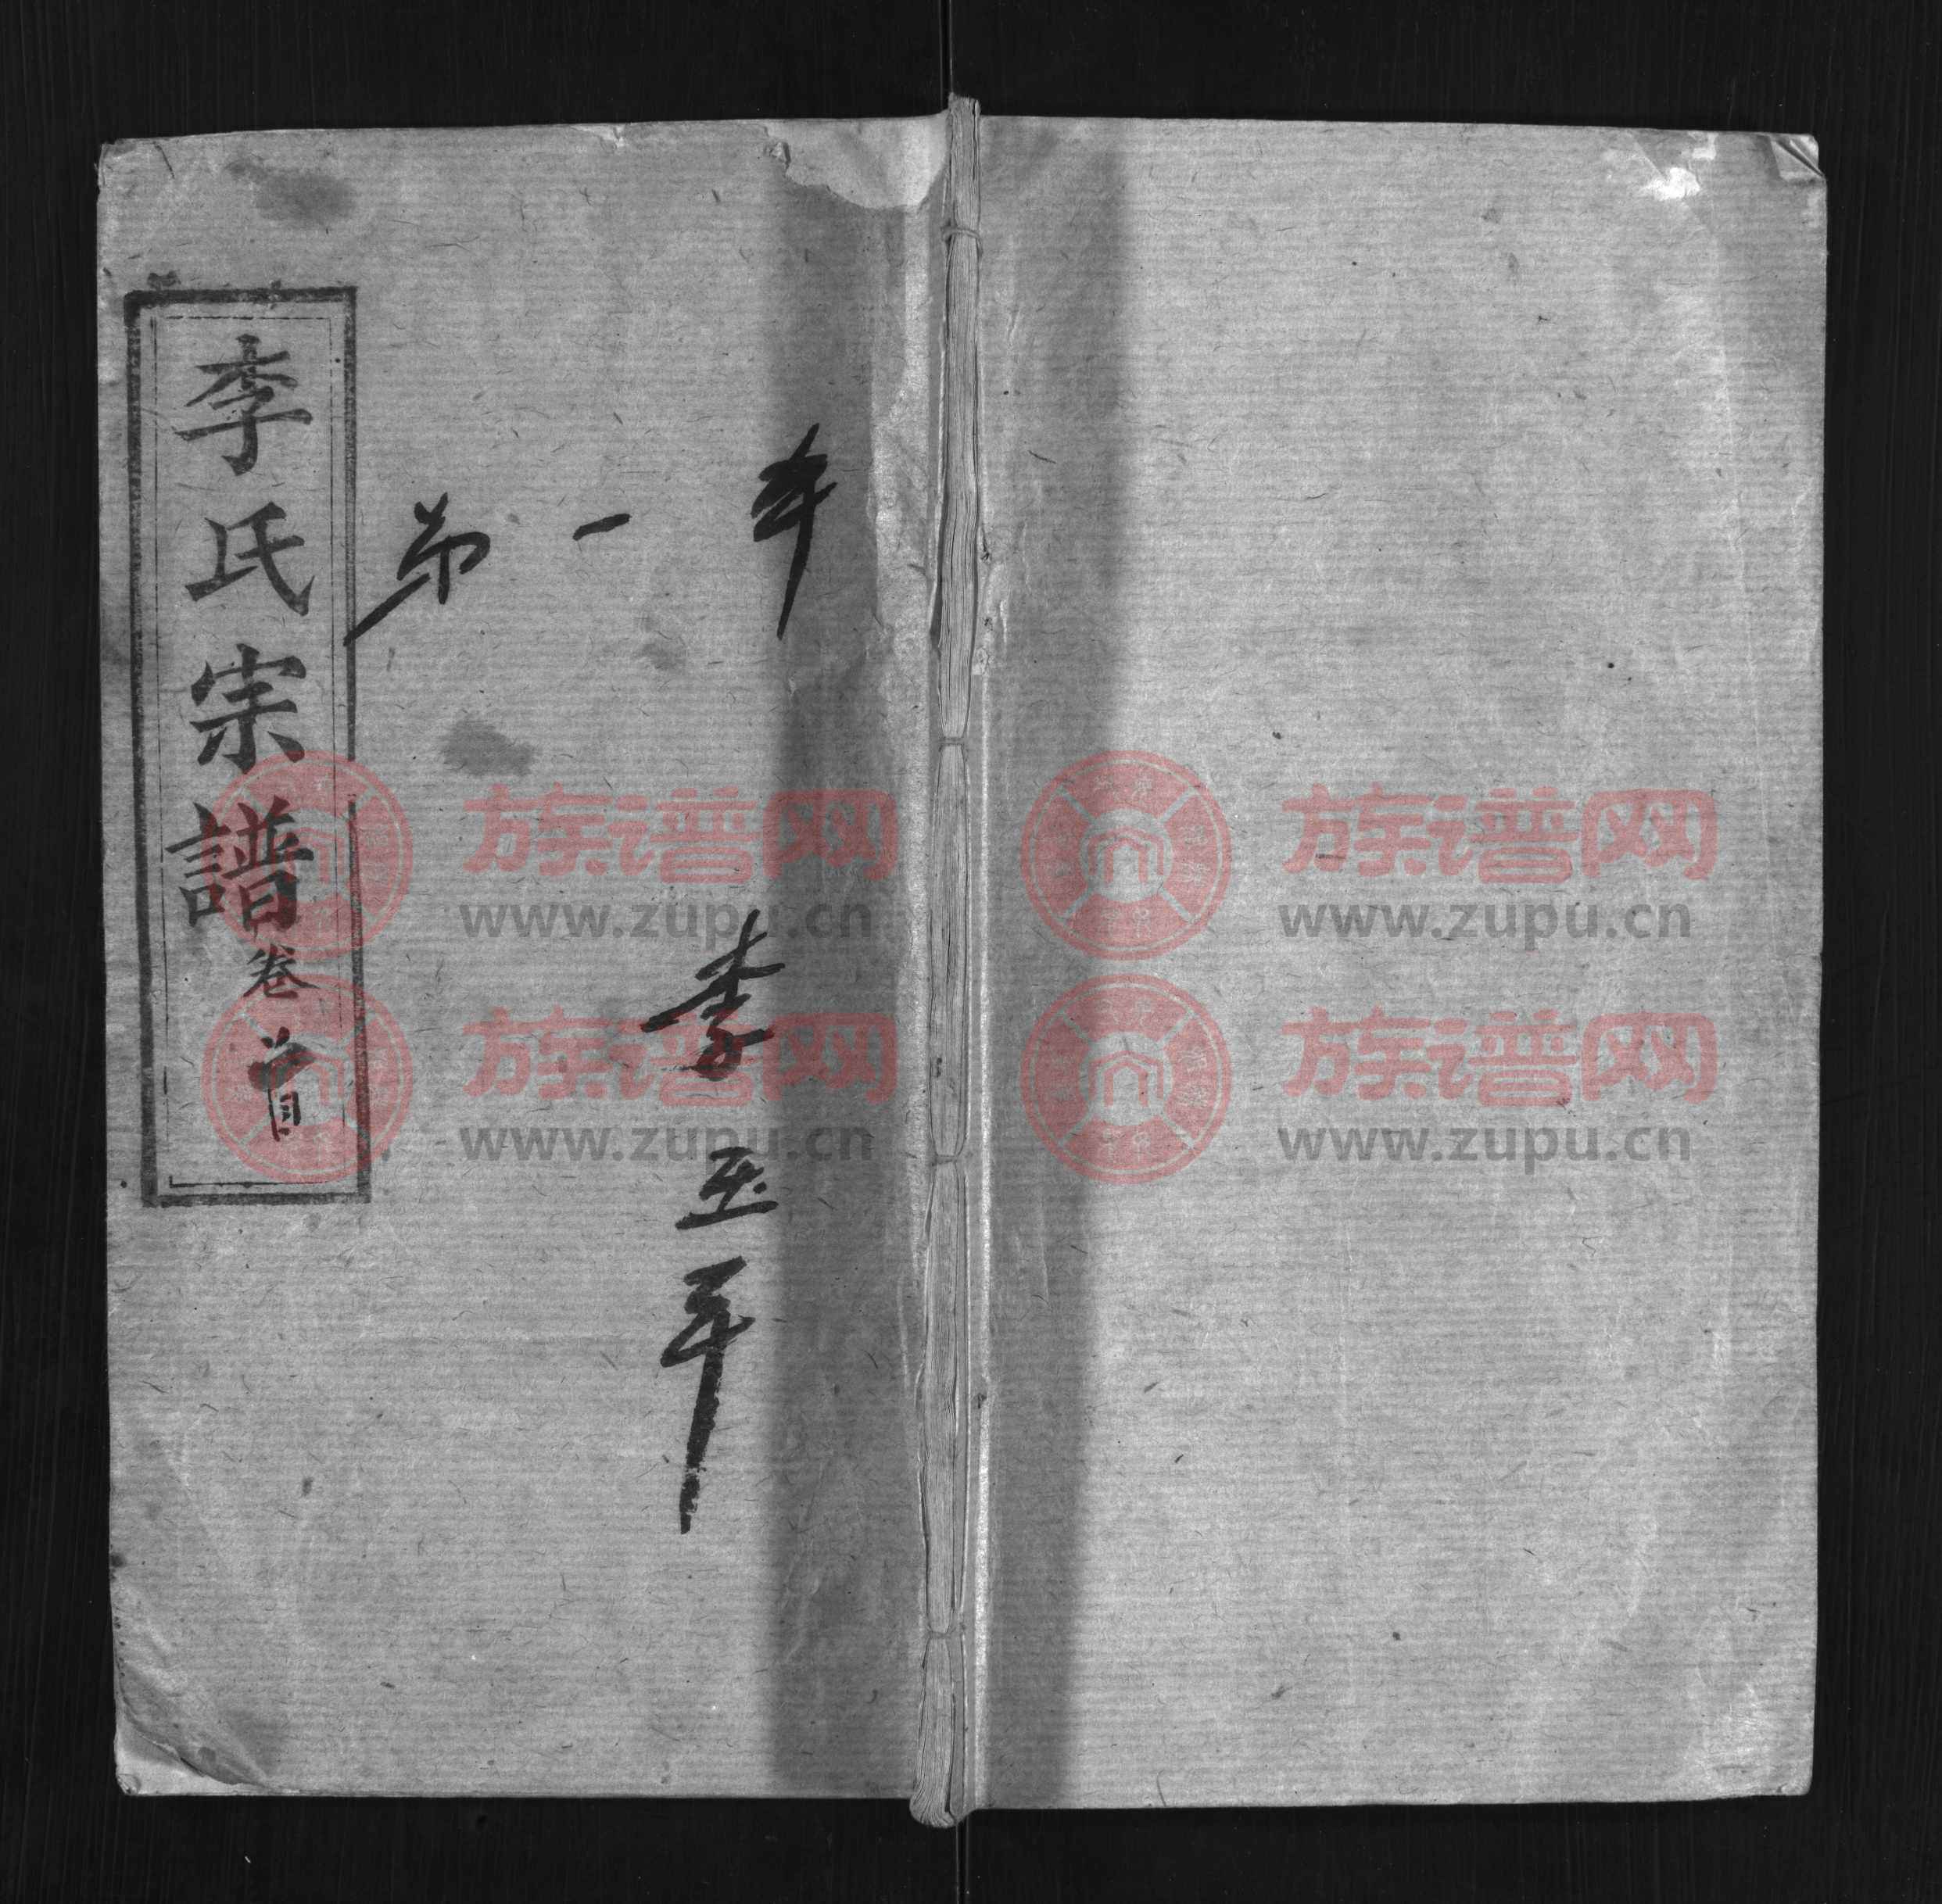 李氏宗譜卷首
第一本
李玉年
族谱网
www.zupu.cn
族谱网
www.zupu.cn
族谱网
www.zupu.cn
族谱网
www.zupu.cn